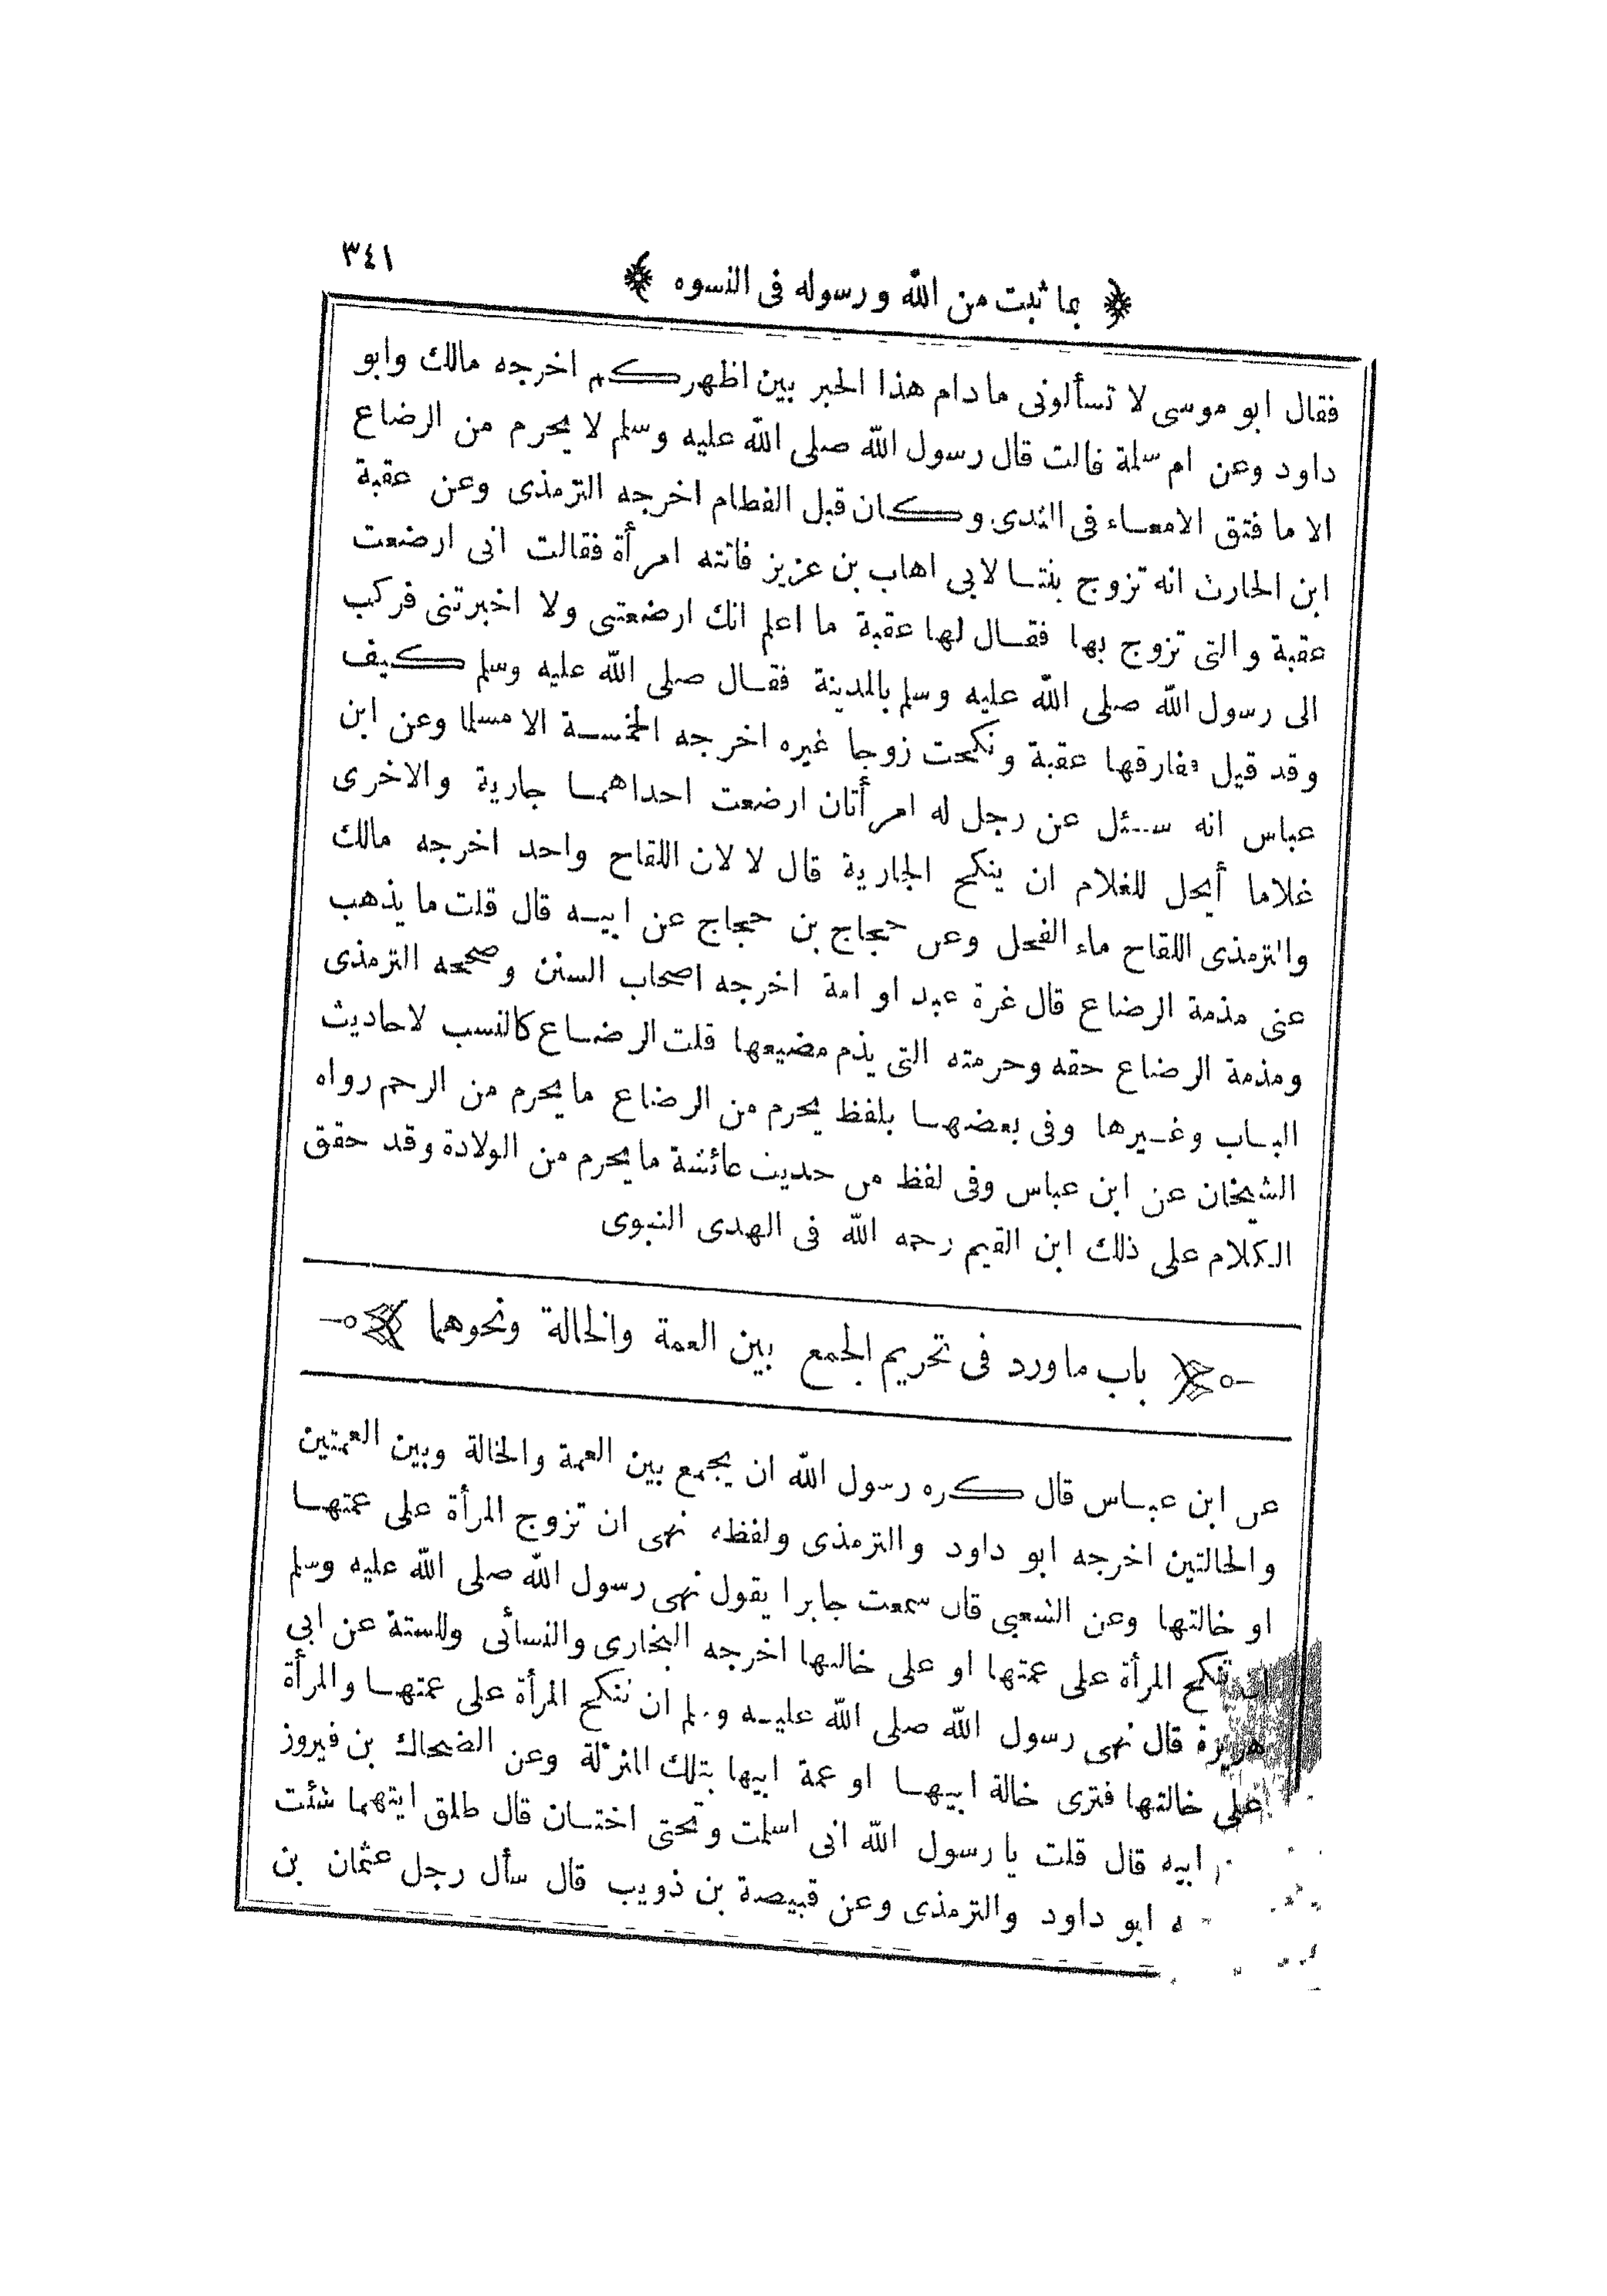 ٣٤١
﴿ بما ثبت من الله ورسوله فى النسوه ﴾
فقال ابو موسى لا تسألونى مادام هذا الحبر بين اظهركم اخرجه مالك وابو
داود وعن ام سلمة قالت قال رسول الله صلى الله عليه وسلم لا يحرم من الرضاع
الا ما فتق الامعاء فى الثدى وكان قبل الفطام اخرجه الترمذى وعن عقبة
ابن الحارث انه تزوج بنتا لابى اهاب بن عزيز فاتته امرأة فقالت انى ارضعت
عقبة والتى تزوج بها فقال لها عقبة ما اعلم انك ارضعتنى ولا اخبرتنى فركب
الى رسول الله صلى الله عليه وسلم بالمدينة فقال صلى الله عليه وسلم كيف
وقد قيل ففارقها عقبة ونكحت زوجا غيره اخرجه الخمسة الا مسلما وعن ابن
عباس انه سئل عن رجل له امرأتان ارضعت احداهما جارية والاخرى
غلاما أيحل للغلام ان ينكح الجارية قال لا لان اللقاح واحد اخرجه مالك
والترمذى اللقاح ماء الفحل وعن حجاج بن حجاج عن ابيه قال قلت ما يذهب
عنى مذمة الرضاع قال غرة عبد او امة اخرجه اصحاب السنن وصححه الترمذى
ومذمة الرضاع حقه وحرمته التى يذم مضيعها قلت الرضاع كالنسب لاحاديث
الباب وغيرها وفى بعضها بلفظ يحرم من الرضاع ما يحرم من الرحم رواه
الشيخان عن ابن عباس وفى لفظ من حديث عائشة ما يحرم من الولادة وقد حقق
الكلام على ذلك ابن القيم رحمه الله فى الهدى النبوى
باب ماورد فى تحريم الجمع بين العمة والخالة ونحوهما
عن ابن عباس قال كره رسول الله ان يجمع بين العمة والخالة وبين العمتين
والخالتين اخرجه ابو داود والترمذى ولفظه نهى ان تزوج المرأة على عمتها
او خالتها وعن الشعبى قال سمعت جابرا يقول نهى رسول الله صلى الله عليه وسلم
ان تنكح المرأة على عمتها او على خالتها اخرجه البخارى والنسائى وللستة عن ابى
هريرة قال نهى رسول الله صلى الله عليه وسلم ان تنكح المرأة على عمتها والمرأة
على خالتها فترى خالة ابيها او عمة ابيها بتلك المنزلة وعن الضحاك بن فيروز
ابيه قال قلت يا رسول الله انى اسلمت وتحتى اختان قال طلق ايتهما شئت
ابو داود والترمذى وعن قبيصة بن ذويب قال سأل رجل عثمان بن